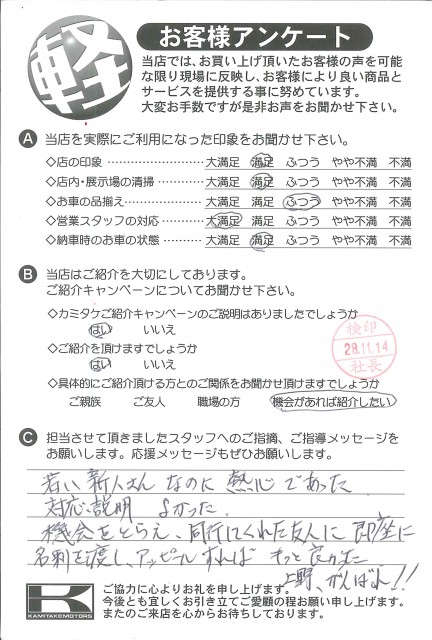 軽
お客様アンケート
当店では、お買い上げ頂いたお客様の声を可能
な限り現場に反映し、お客様により良い商品と
サービスを提供する事に努めています。
大変お手数ですが是非お声をお聞かせ下さい。
A 当店を実際にご利用になった印象をお聞かせ下さい。
◇店の印象 ………………… 大満足 満足 ふつう やや不満 不満
◇店内・展示場の清掃 ………… 大満足 満足 ふつう やや不満 不満
◇お車の品揃え ……………… 大満足 満足 ふつう やや不満 不満
◇営業スタッフの対応 ………… 大満足 満足 ふつう やや不満 不満
◇納車時のお車の状態 ………… 大満足 満足 ふつう やや不満 不満
B 当店はご紹介を大切にしております。
ご紹介キャンペーンについてお聞かせ下さい。
◇カミタケご紹介キャンペーンのご説明はありましたでしょうか
はい いいえ
◇ご紹介を頂けますでしょうか
はい いいえ
検印
28.11.14
社長
◇具体的にご紹介頂ける方とのご関係をお聞かせ頂けますでしょうか
ご親族 ご友人 職場の方 機会があれば紹介したい
C 担当させて頂きましたスタッフへのご指摘、ご指導メッセージを
お願いします。応援メッセージもぜひお願いします。
若い新人さんなのに熱心であった
対応、説明 よかった。
機会をとらえ、同行してくれた友人に即座に
名刺を渡し、アッピールすれば もっと良かった
上野、がんばれ!!
K
KAMITAKEMOTORS
ご協力に心よりお礼を申し上げます。
今後とも宜しくお引き立てご愛顧の程お願い申し上げます。
またのご来店を心からお待ちしております。